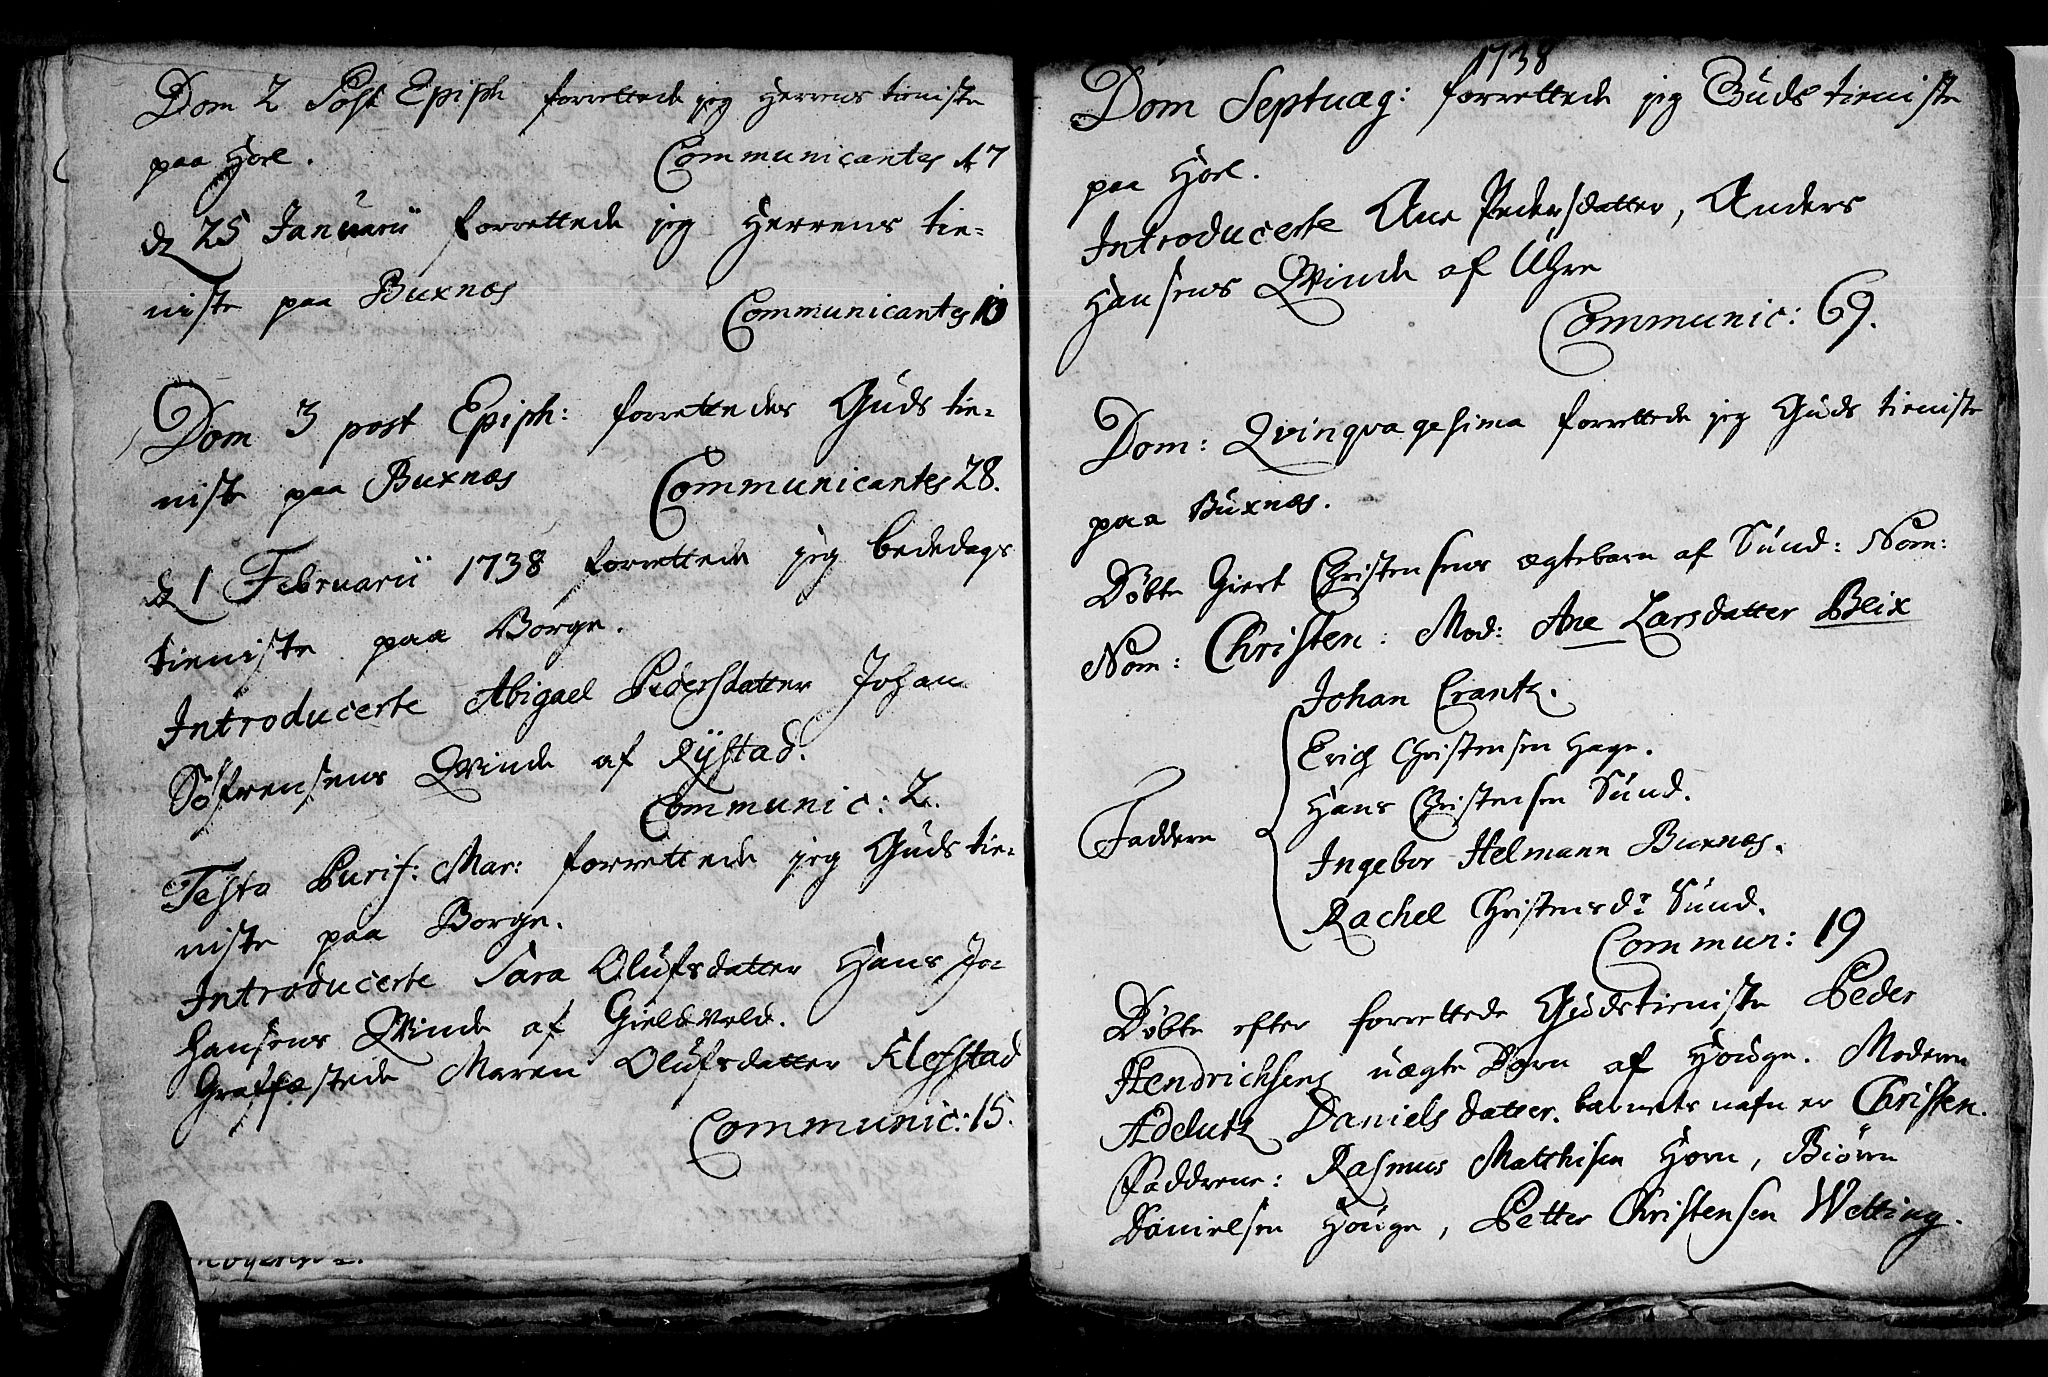 Dom 2 Post Epiph forrettede jeg Herrens tieniste
paa Hoel. Communicantes 17
d 25 Januarii forrettede jeg Herrens tie-
niste paa Buxnæs
Communicantes 10
Dom 3 post Epiph: forrettedes Guds tie-
niste paa Buxnæs Communicantes 28.
d 1 Februarii 1738 forrettede jeg bededags
tieniste paa Borge.
Introducerte Abigael Pedersdatter Johan
Søfrensens Qvinde af Rystad.
Communic: 2.
Festo Purif: Mar: forrettede jeg Guds tie-
niste paa Borge.
Introducerte Sara Olufsdatter Hans Jo-
hansens Qvinde af Gieldvold.
Graffæstede Maren Olufsdatter Klefstad
Communic: 15.
1738
Dom Septuag: forrettede jeg Guds tieniste
paa Hoel.
Introducerte Ane Pedersdatter, Anders
Hansens Qvinde af Uhre
Communic: 69.
Dom: Qvinqvagesima forrettede jeg Guds tieniste
paa Buxnæs.
Døbte Giert Christensens ægtebarn af Sund: Nom:
Nom: Christen: Mod: Ane Larsdatter Bleix
Johan Crantz.
Erich Christensen Hage.
Faddere Hans Christensen Sund.
Ingebor Helmann Buxnæs.
Rachel Christensdr Sund.
Commun: 19
Døbte efter forrettede Gudstieniste Peder
Hendrichsens uægte Barn af Houge. Moderen
Adelutz Daniels datter. barnets nafn er Christen.
Faddrene: Rasmus Matthisen Horn, Biørn
Danielsen Houge, Petter Christensen Wetting.